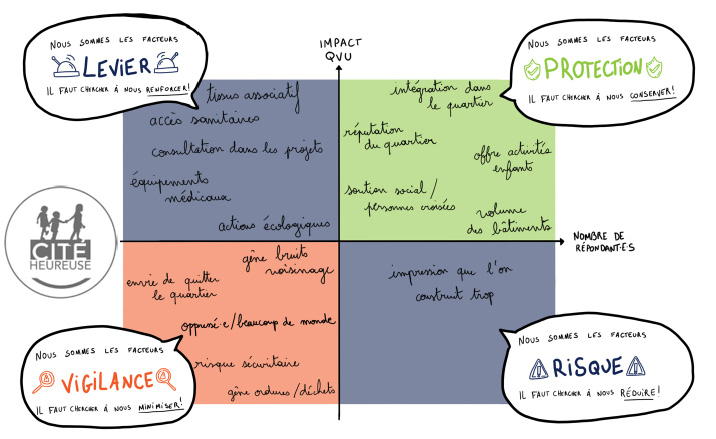 IMPACT
QVU
NOUS SOMMES LES FACTEURS
LEVIER
IL FAUT CHERCHER À NOUS RENFORCER!
NOUS SOMMES LES FACTEURS
PROTECTION
IL FAUT CHERCHER À NOUS CONSERVER!
tissus associatif
accès sanitaires
consultation dans les projets
équipements
médicaux
actions écologiques
intégration dans
le quartier
réputation
du quartier
offre activités
enfants
soutien social/
personnes croisées
volume
des bâtiments
NOMBRE DE
RÉPONDANT·E·S
CITÉ
HEUREUSE
gêne bruits
voisinage
envie de quitter
le quartier
oppressé·e/beaucoup de monde
risque sécuritaire
gêne ordures/déchets
impression que l'on
construit trop
NOUS SOMMES LES FACTEURS
VIGILANCE
IL FAUT CHERCHER À NOUS MINIMISER!
NOUS SOMMES LES FACTEURS
RISQUE
IL FAUT CHERCHER À NOUS RÉDUIRE!